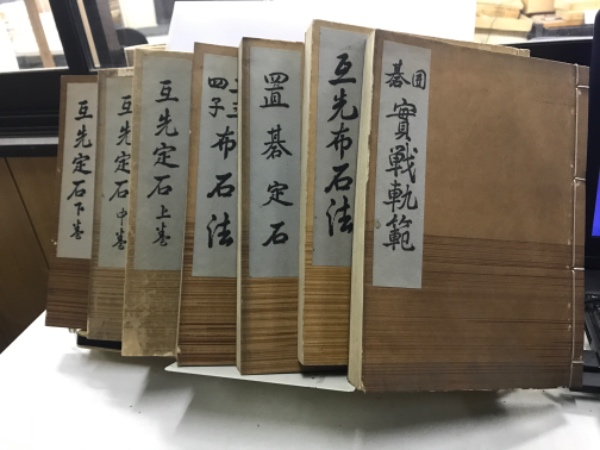 囲碁 實戦軌範
互先布石法
置碁定石
二三四子布石法
互先定石 上巻
互先定石 中巻
互先定石 下巻